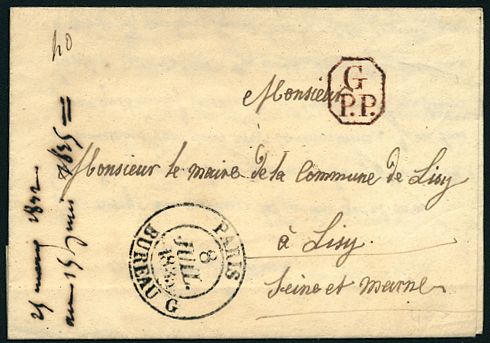 40
G
P.P.
Monsieur
Monsieur le maire de la Commune de Lisy
à Lisy.
Seine et marne
PARIS
8
JUIL.
1835
BUREAU G
25 mars 1832
au 15 juin 1835 =